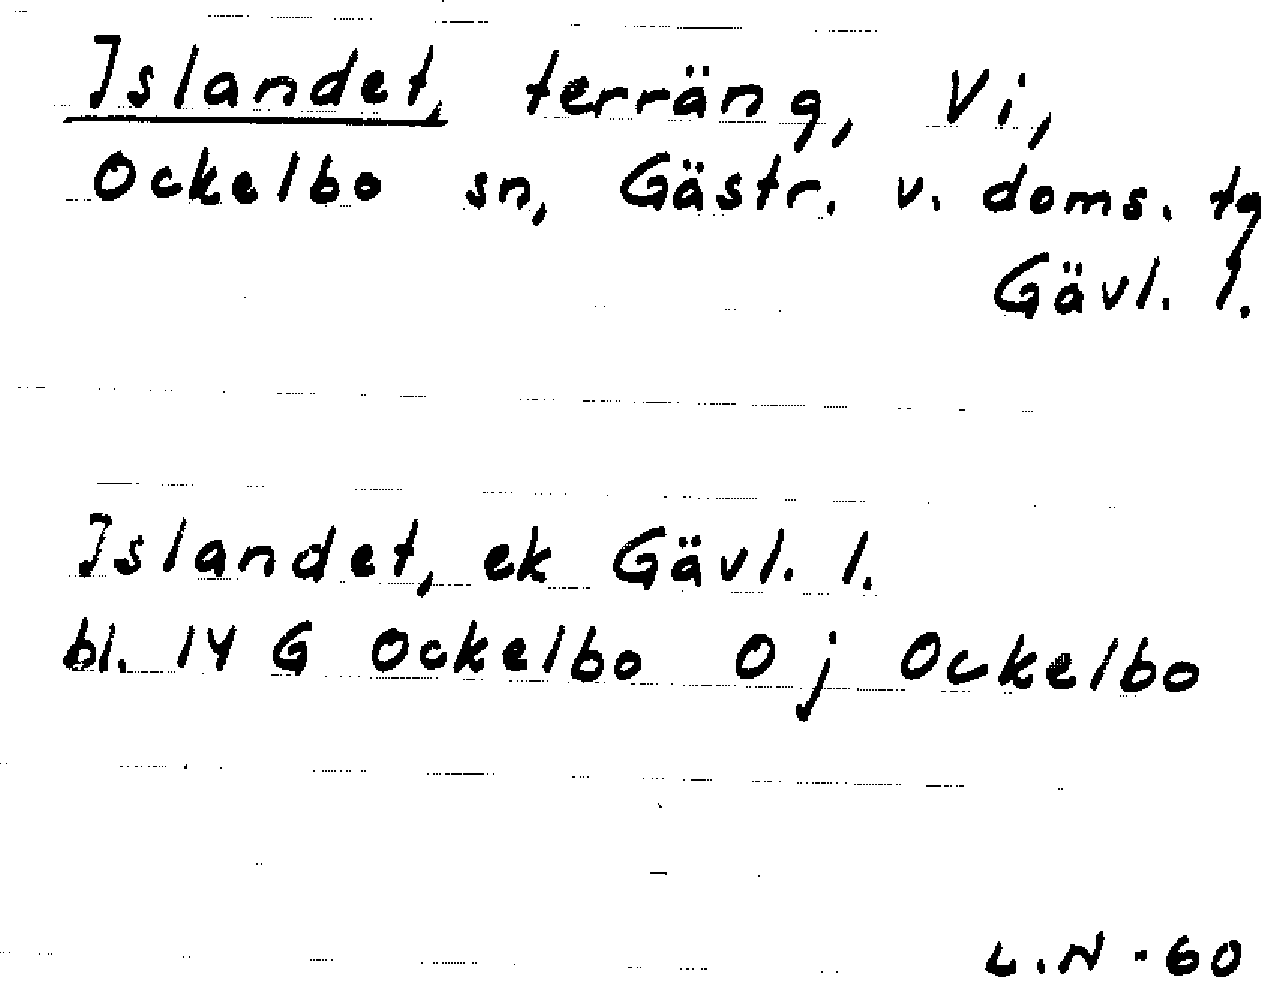 Islandet, terräng, Vi,
Ockelbo sn, Gästr. v. doms. tg
Gävl. l.
Islandet, ek Gävl. l.
bl. 14 G Ockelbo O j Ockelbo
L.N -60